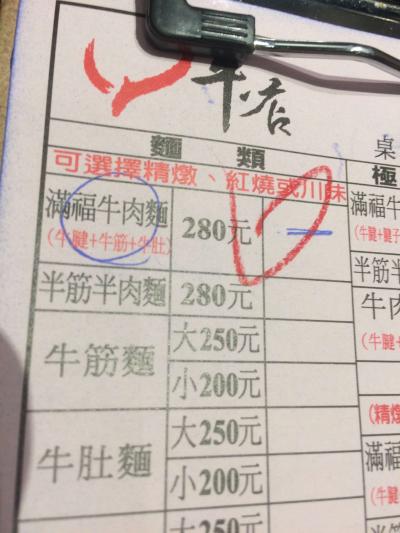 牛店
桌
麵類
極
可選擇精燉、紅燒或川味
滿福牛肉麵 280元 一
(牛腱+牛筋+牛肚)
半筋半肉麵 280元
牛筋麵 大250元
小200元
牛肚麵 大250元
小200元
大250元
滿福牛
(牛腱+腱子
半筋半
牛肉
(牛腱+
(精燉
滿福
(牛腱
半筋